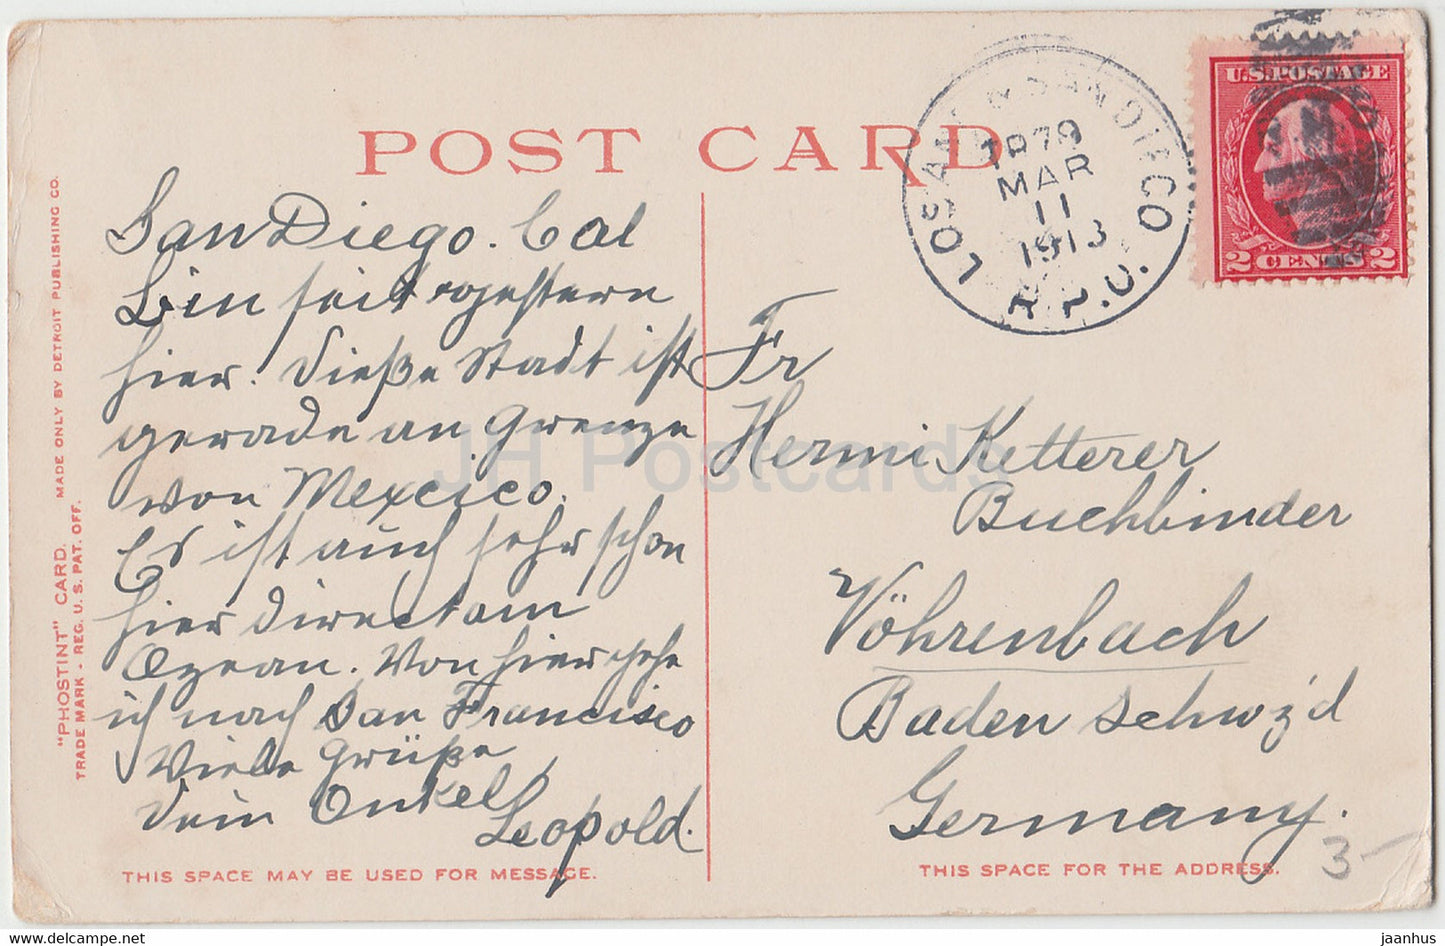 POST CARD
LOS ANG & SAN DIEGO
1079
MAR
11
1913
R.P.O.
U.S. POSTAGE
2 CENTS 2
San Diego. Cal
Bin seit gestern
hier. Diese Stadt ist
gerade an Grenze
von Mexcico.
Es ist auch sehr schön
hier direct am
Ozean. Von hier gehe
ich nach San Francisco
Viele Grüße
Dein Onkel
Leopold.
Fr
Hermi Ketterer
Buchbinder
Vöhrenbach
Baden Schwz'd
Germany.
3-
THIS SPACE MAY BE USED FOR MESSAGE.
THIS SPACE FOR THE ADDRESS.
"PHOSTINT" CARD. MADE ONLY BY DETROIT PUBLISHING CO.
TRADE MARK - REG. U. S. PAT. OFF.
JH Postcards
www.delcampe.net
jaanhus